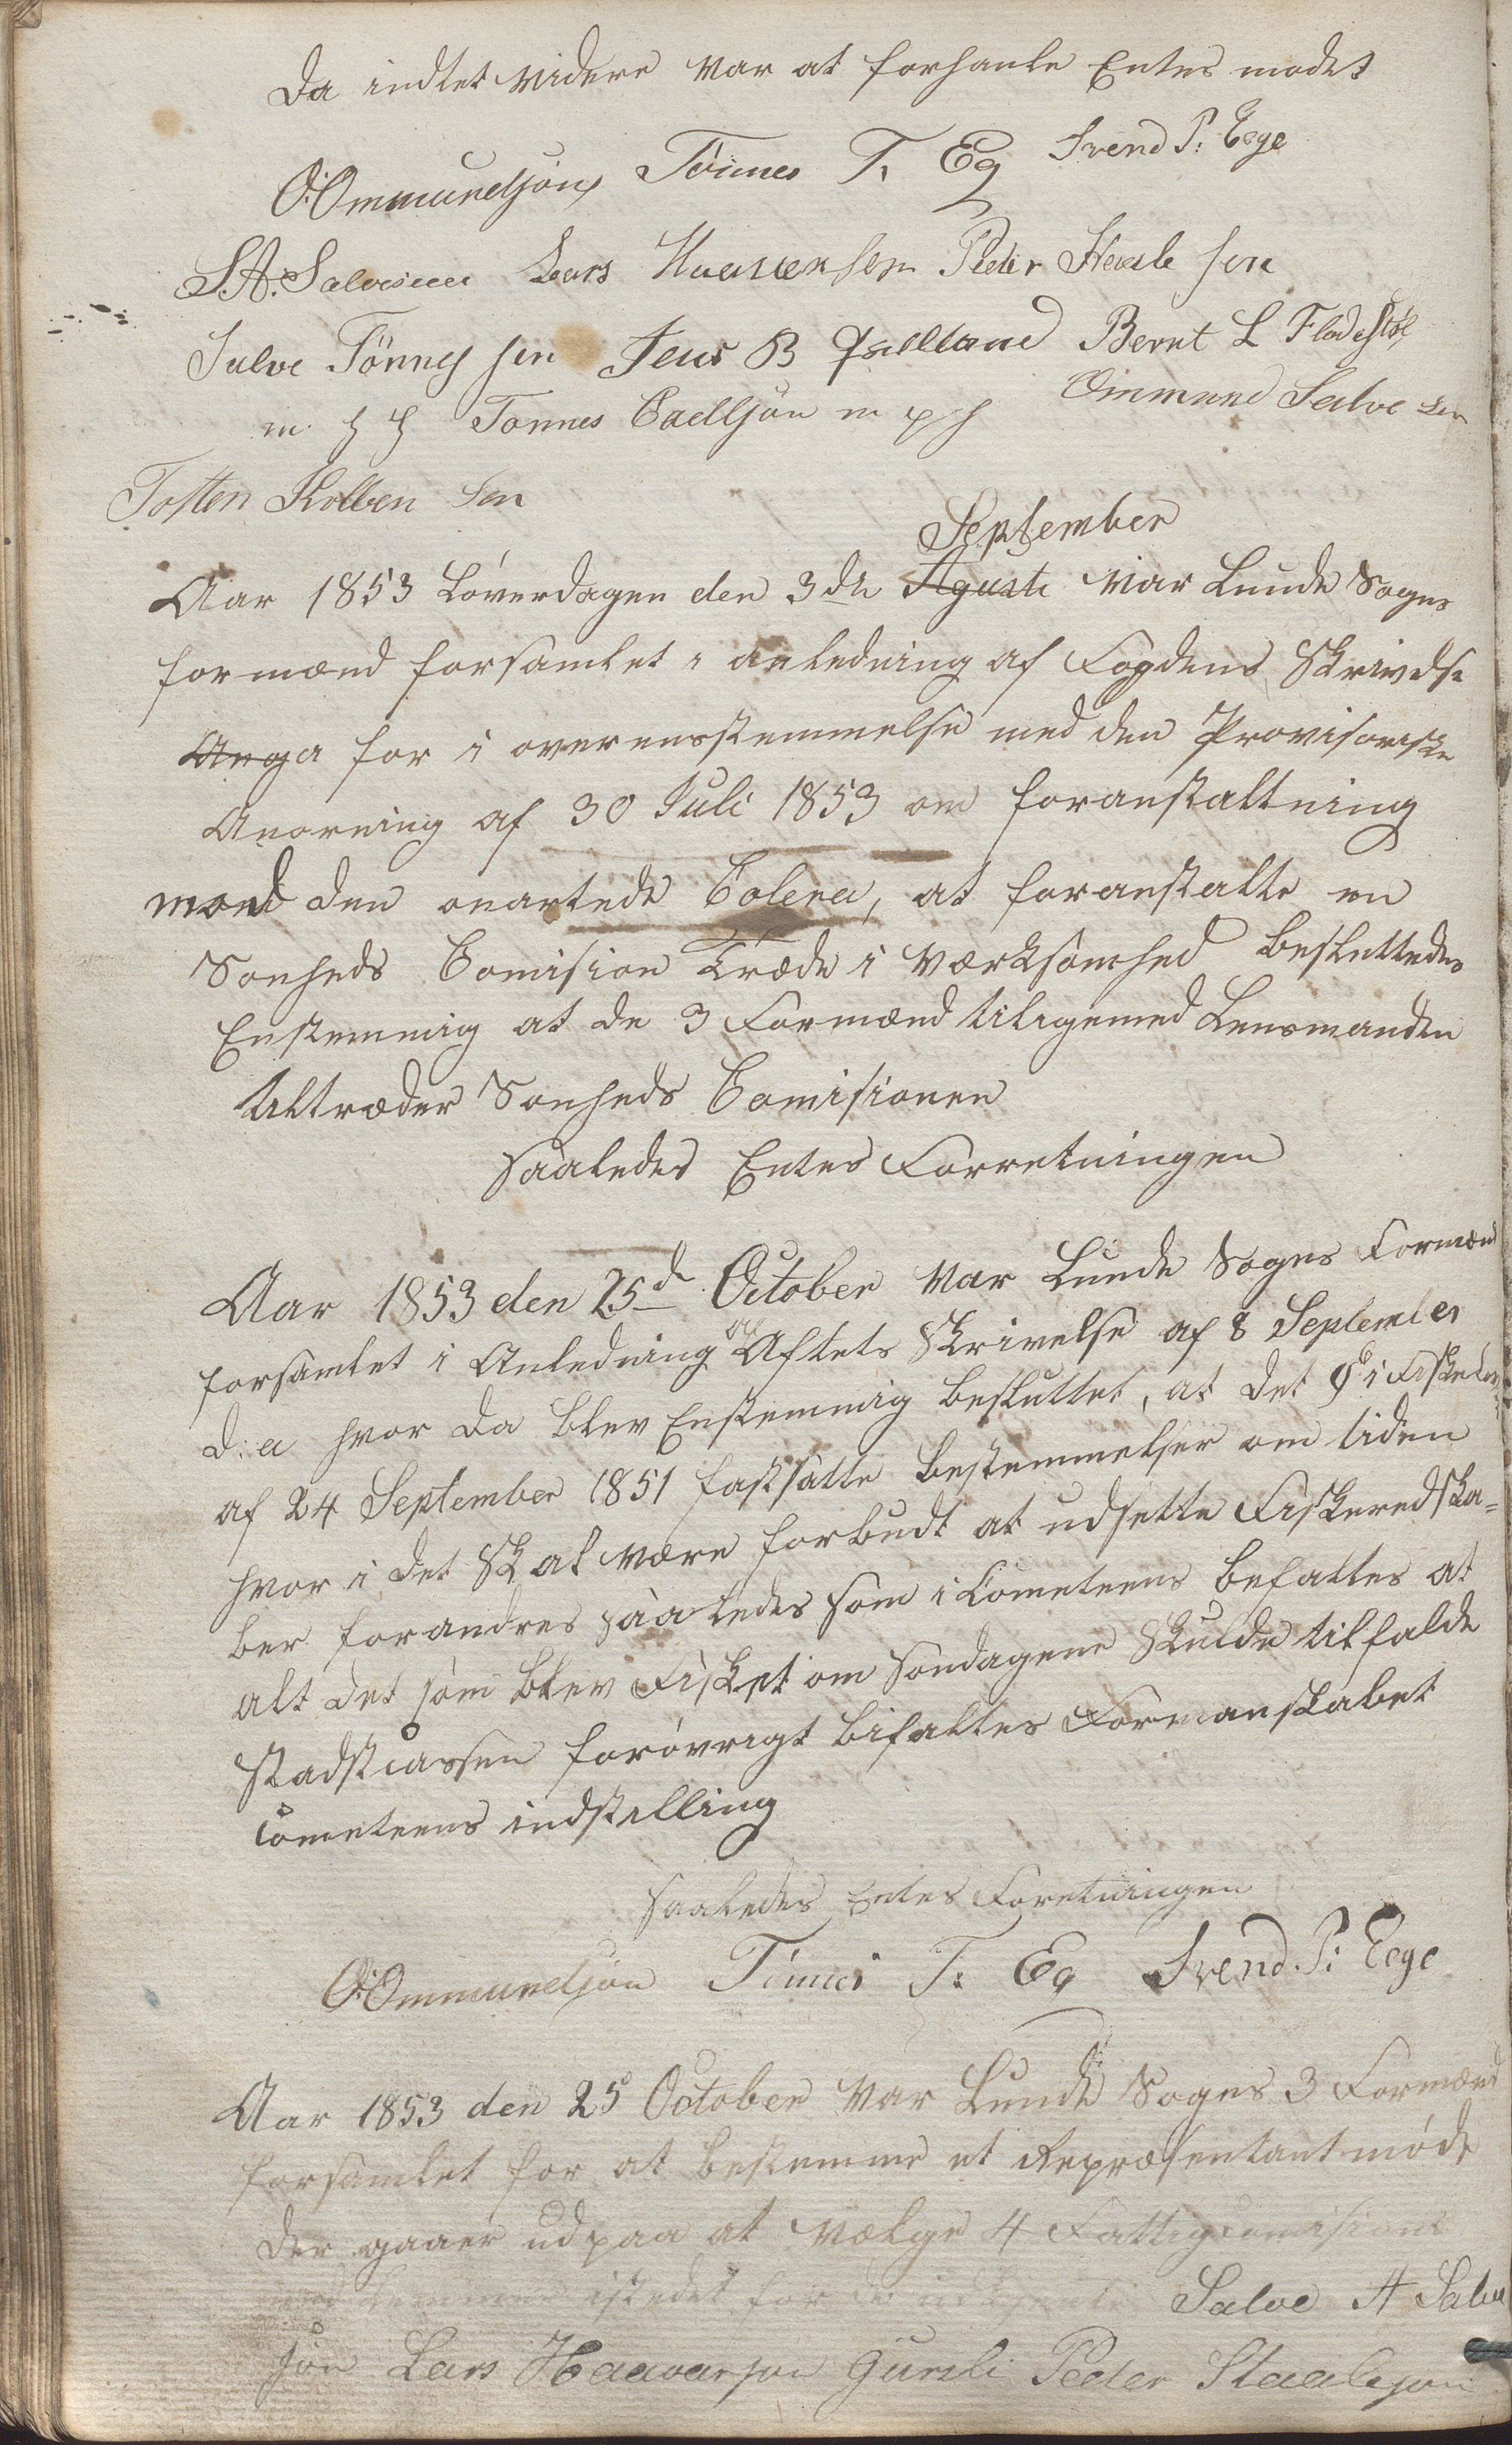 Da indtet videre var at forhanle Entes modet
O: Ommundsøn Tønnes T. Eg Svend P: Eege
S. A. Salvesen Lars Haavarsen Peder Staale sen
Salve Tønnes sen Jens B Qvelland Bernt L Fladestøl
m. f f Tønnes Carlsøn m p f Ommund Salve sen
Tosten Kolben sen
September
Aar 1853 Løverdagen den 3die Agusti var Lunde Sogns
formænd forsamlet i anledning af Fogdens Skrivelse
Anga for i overensstemmelse med den Provisoriske
Anorning af 30 Juli 1853 om foranstaltning
mod den onartede Colera, at foranstalte en
Sonheds Comision træde i værksomhed besluttedes
Enstemmig at de 3 Formænd tiligemed Lensmanden
tiltræder Sonheds Comisionen
saaledes Entes Forretningen
Aar 1853 den 25de October var Lunde Sogns Formænd
forsamlet i Anledning af Amtets Skrivelse af 8 September
d: a hvor da blev Enstemmig besluttet, at det § i Fiskelov
af 24 September 1851 fastsatte bestemmelser om tiden
hvor i det Skal være forbudt at udsette Fiskeredska-
ber forandres saaledes som i Cometeens befattes at
alt det som blev Fisket om Søndagene Skulde tilfalde
Stadscassen forøvrigt bifaltes Formanskabet
Cometeens indstilling
saaledes Entes Foretningen
O: Ommundsøn Tønnes T. Eg Svend P: Eege
Aar 1853 den 25 October var Lunde Sogns 3 Formænd
forsamlet for at bestemme et Repræsentantmøde
der gaaer ud paa at vælge 4 Fattigcomisions
medlemmer istedet for de Salve A Salve
søn Lars Haavarsøn Gursli Peder Staalesøn